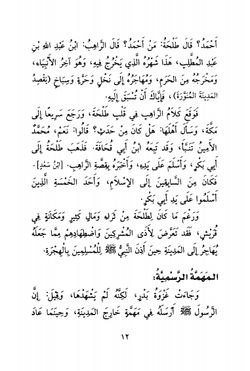 أَحْمَدُ؟ قَالَ طَلْحَةُ: مَنْ أَحْمَدُ؟ قَالَ الرَّاهِبُ: ابْنُ عَبْدِ اللهِ بْنِ
عَبْدِ الْمُطَّلِبِ، هَذَا شَهْرُهُ الَّذِي يَخْرُجُ فِيهِ، وَهُوَ آخِرُ الأَنْبِيَاءِ،
وَمَخْرَجُهُ مِنَ الْحَرَمِ، وَمُهَاجَرُهُ إِلَى نَخْلٍ وَحَرَّةٍ وَسِبَاخٍ (يَقْصِدُ
الْمَدِينَةَ الْمُنَوَّرَةَ)، فَإِيَّاكَ أَنْ تُسْبَقَ إِلَيْهِ.
فَوَقَعَ كَلَامُ الرَّاهِبِ فِي قَلْبِ طَلْحَةَ، وَرَجَعَ سَرِيعًا إِلَى
مَكَّةَ، وَسَأَلَ أَهْلَهَا: هَلْ كَانَ مِنْ حَدَثٍ؟ قَالُوا: نَعَمْ، مُحَمَّدٌ
الْأَمِينُ تَنَبَّأَ، وَقَدْ تَبِعَهُ ابْنُ أَبِي قُحَافَةَ. فَذَهَبَ طَلْحَةُ إِلَى
أَبِي بَكْرٍ، وَأَسْلَمَ عَلَى يَدِهِ، وَأَخْبَرَهُ بِقِصَّةِ الرَّاهِبِ. [ابْنُ سَعْدٍ].
فَكَانَ مِنَ السَّابِقِينَ إِلَى الْإِسْلَامِ، وَأَحَدَ الْخَمْسَةِ الَّذِينَ
أَسْلَمُوا عَلَى يَدِ أَبِي بَكْرٍ.
وَرَغْمَ مَا كَانَ لِطَلْحَةَ مِنْ ثَرَاءٍ وَمَالٍ كَثِيرٍ وَمَكَانَةٍ فِي
قُرَيْشٍ، فَقَدْ تَعَرَّضَ لِأَذَى الْمُشْرِكِينَ وَاضْطِهَادِهِمْ مِمَّا جَعَلَهُ
يُهَاجِرُ إِلَى الْمَدِينَةِ حِينَ أَذِنَ النَّبِيُّ ﷺ لِلْمُسْلِمِينَ بِالْهِجْرَةِ.
المَهَمَّةُ الرَّسْمِيَّةُ:
وَجَاءَتْ غَزْوَةُ بَدْرٍ، لَكِنَّهُ لَمْ يَشْهَدْهَا، وَقِيلَ: إِنَّ
الرَّسُولَ ﷺ أَرْسَلَهُ فِي مَهَمَّةٍ خَارِجَ الْمَدِينَةِ، وَحِينَمَا عَادَ
١٢